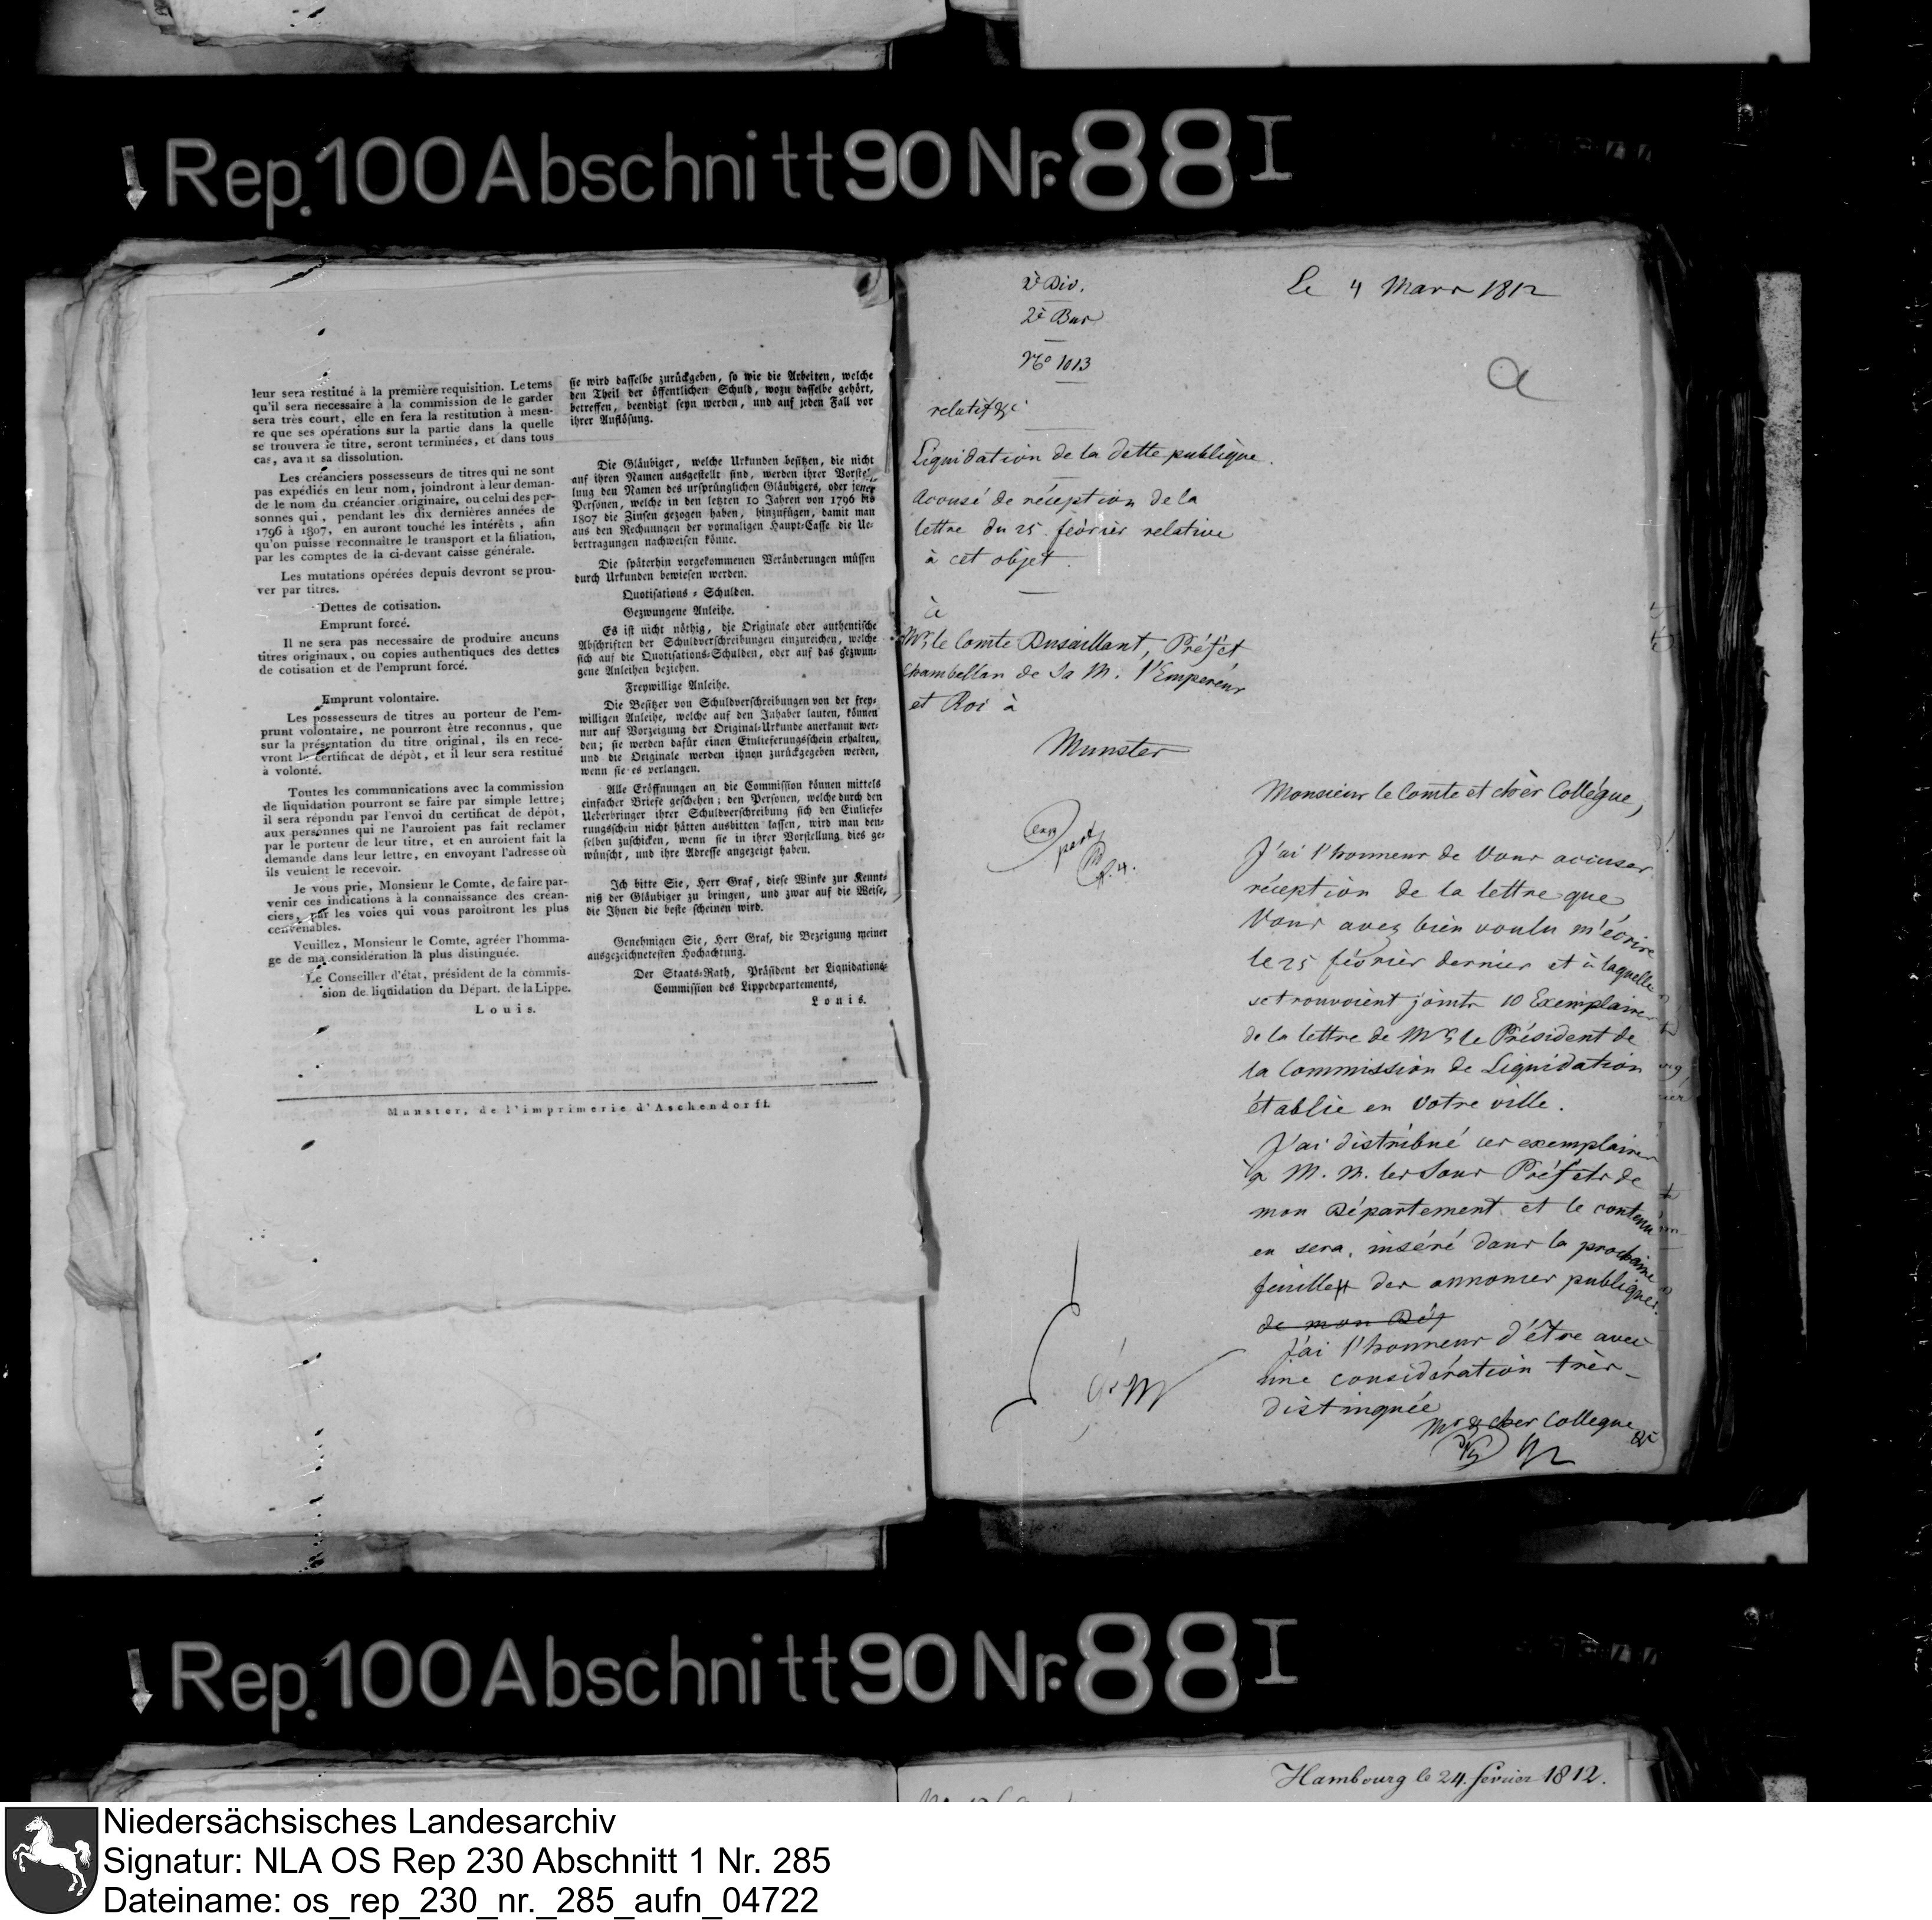 Rep. 100 Abschnitt 90 Nr. 88 I
leur sera restitué à la première requisition. Le tems
qu'il sera necessaire à la commission de le garder
sera très court, elle en fera la restitution à mesu-
re que ses opérations sur la partie dans la quelle
se trouvera le titre, seront terminées, et dans tous
cas, avant sa dissolution.
Les créanciers possesseurs de titres qui ne sont
pas expédiés en leur nom, joindront à leur deman-
de le nom du créancier originaire, ou celui des per-
sonnes qui, pendant les dix dernières années de
1796 à 1807, en auront touché les intérêts, afin
qu'on puisse reconnaître le transport et la filiation,
par les comptes de la ci-devant caisse générale.
Les mutations opérées depuis devront se prou-
ver par titres.
Dettes de cotisation.
Emprunt forcé.
Il ne sera pas necessaire de produire aucuns
titres originaux, ou copies authentiques des dettes
de cotisation et de l'emprunt forcé.
Emprunt volontaire.
Les possesseurs de titres au porteur de l'em-
prunt volontaire, ne pourront être reconnus, que
sur la présentation du titre original, ils en rece-
vront le certificat de dépôt, et il leur sera restitué
à volonté.
Toutes les communications avec la commission
de liquidation pourront se faire par simple lettre;
il sera répondu par l'envoi du certificat de dépôt,
aux personnes qui ne l'auroient pas fait reclamer
par le porteur de leur titre, et en auroient fait la
demande dans leur lettre, en envoyant l'adresse où
ils veulent le recevoir.
Je vous prie, Monsieur le Comte, de faire par-
venir ces indications à la connaissance des créan-
ciers, par les voies qui vous paroitront les plus
convenables.
Veuillez, Monsieur le Comte, agréer l'homma-
ge de ma considération la plus distinguée.
Le Conseiller d'état, président de la commis-
sion de liquidation du Départ. de la Lippe.
Louis.
sie wird dasselbe zurückgeben, so wie die Arbeiten, welche
den Theil der öffentlichen Schuld, wozu dasselbe gehört,
betreffen, beendigt seyn werden, und auf jeden Fall vor
ihrer Auflösung.
Die Gläubiger, welche Urkunden besitzen, die nicht
auf ihren Namen ausgestellt sind, werden ihrer Vorstel-
lung den Namen des ursprünglichen Gläubigers, oder jener
Personen, welche in den letzten 10 Jahren von 1796 bis
1807 die Zinsen gezogen haben, hinzufügen, damit man
aus den Rechnungen der vormaligen Haupt-Casse die Ue-
bertragungen nachweisen könne.
Die späterhin vorgekommenen Veränderungen müssen
durch Urkunden bewiesen werden.
Quotisations-Schulden.
Gezwungene Anleihe.
Es ist nicht nöthig, die Originale oder authentische
Abschriften der Schuldverschreibungen einzureichen, welche
sich auf die Quotisations-Schulden, oder auf das gezwun-
gene Anleihen beziehen.
Freywillige Anleihe.
Die Besitzer von Schuldverschreibungen von der frey-
willigen Anleihe, welche auf den Inhaber lauten, können
nur auf Vorzeigung der Original-Urkunde anerkannt wer-
den; sie werden dafür einen Einlieferungsschein erhalten,
und die Originale werden ihnen zurückgegeben werden,
wenn sie es verlangen.
Alle Eröffnungen an die Commission können mittels
einfacher Briefe geschehen; den Personen, welche durch den
Ueberbringer ihrer Schuldverschreibung sich den Einliefe-
rungsschein nicht hätten ausbitten lassen, wird man den-
selben zuschicken, wenn sie in ihrer Vorstellung dies ge-
wünscht, und ihre Adresse angezeigt haben.
Ich bitte Sie, Herr Graf, diese Winke zur Kennt-
niß der Gläubiger zu bringen, und zwar auf die Weise,
die Ihnen die beste scheinen wird.
Genehmigen Sie, Herr Graf, die Bezeigung meiner
ausgezeichnetesten Hochachtung.
Der Staats-Rath, Präsident der Liquidations-
Commission des Lippedepartements,
Louis.
Munster, de l'imprimerie d'Aschendorff.
2e Div.
2e Bur
No 1013
Le 4 Mars 1812
Liquidation de la dette publique.
Accusé de réception de la
lettre du 25 février relative
à cet objet.
à
Mr. le Comte Dusaillant, Préfet
Chambellan de Sa M. l'Empereur
et Roi à
Munster
Monsieur le Comte et cher Collègue,
J'ai l'honneur de Vous accuser
réception de la lettre que
Vous avez bien voulu m'écrire
le 25 février dernier et à laquelle
se trouvoient joints 10 Exemplaires
de la lettre de Mr. le Président de
la Commission de Liquidation
établie en Votre ville.
J'ai distribué ces exemplaires
à M. M. les Sous Préfets de
mon Département et le contenu
en sera inséré dans la prochaine
feuille des annonces publiques.
de mon Dép
J'ai l'honneur d'être avec
une considération très-
distinguée
Mr & cher Collegue
Rep. 100 Abschnitt 90 Nr. 88 I
Hambourg le 24. fevrier 1812.
Niedersächsisches Landesarchiv
Signatur: NLA OS Rep 230 Abschnitt 1 Nr. 285
Dateiname: os_rep_230_nr._285_aufn_04722